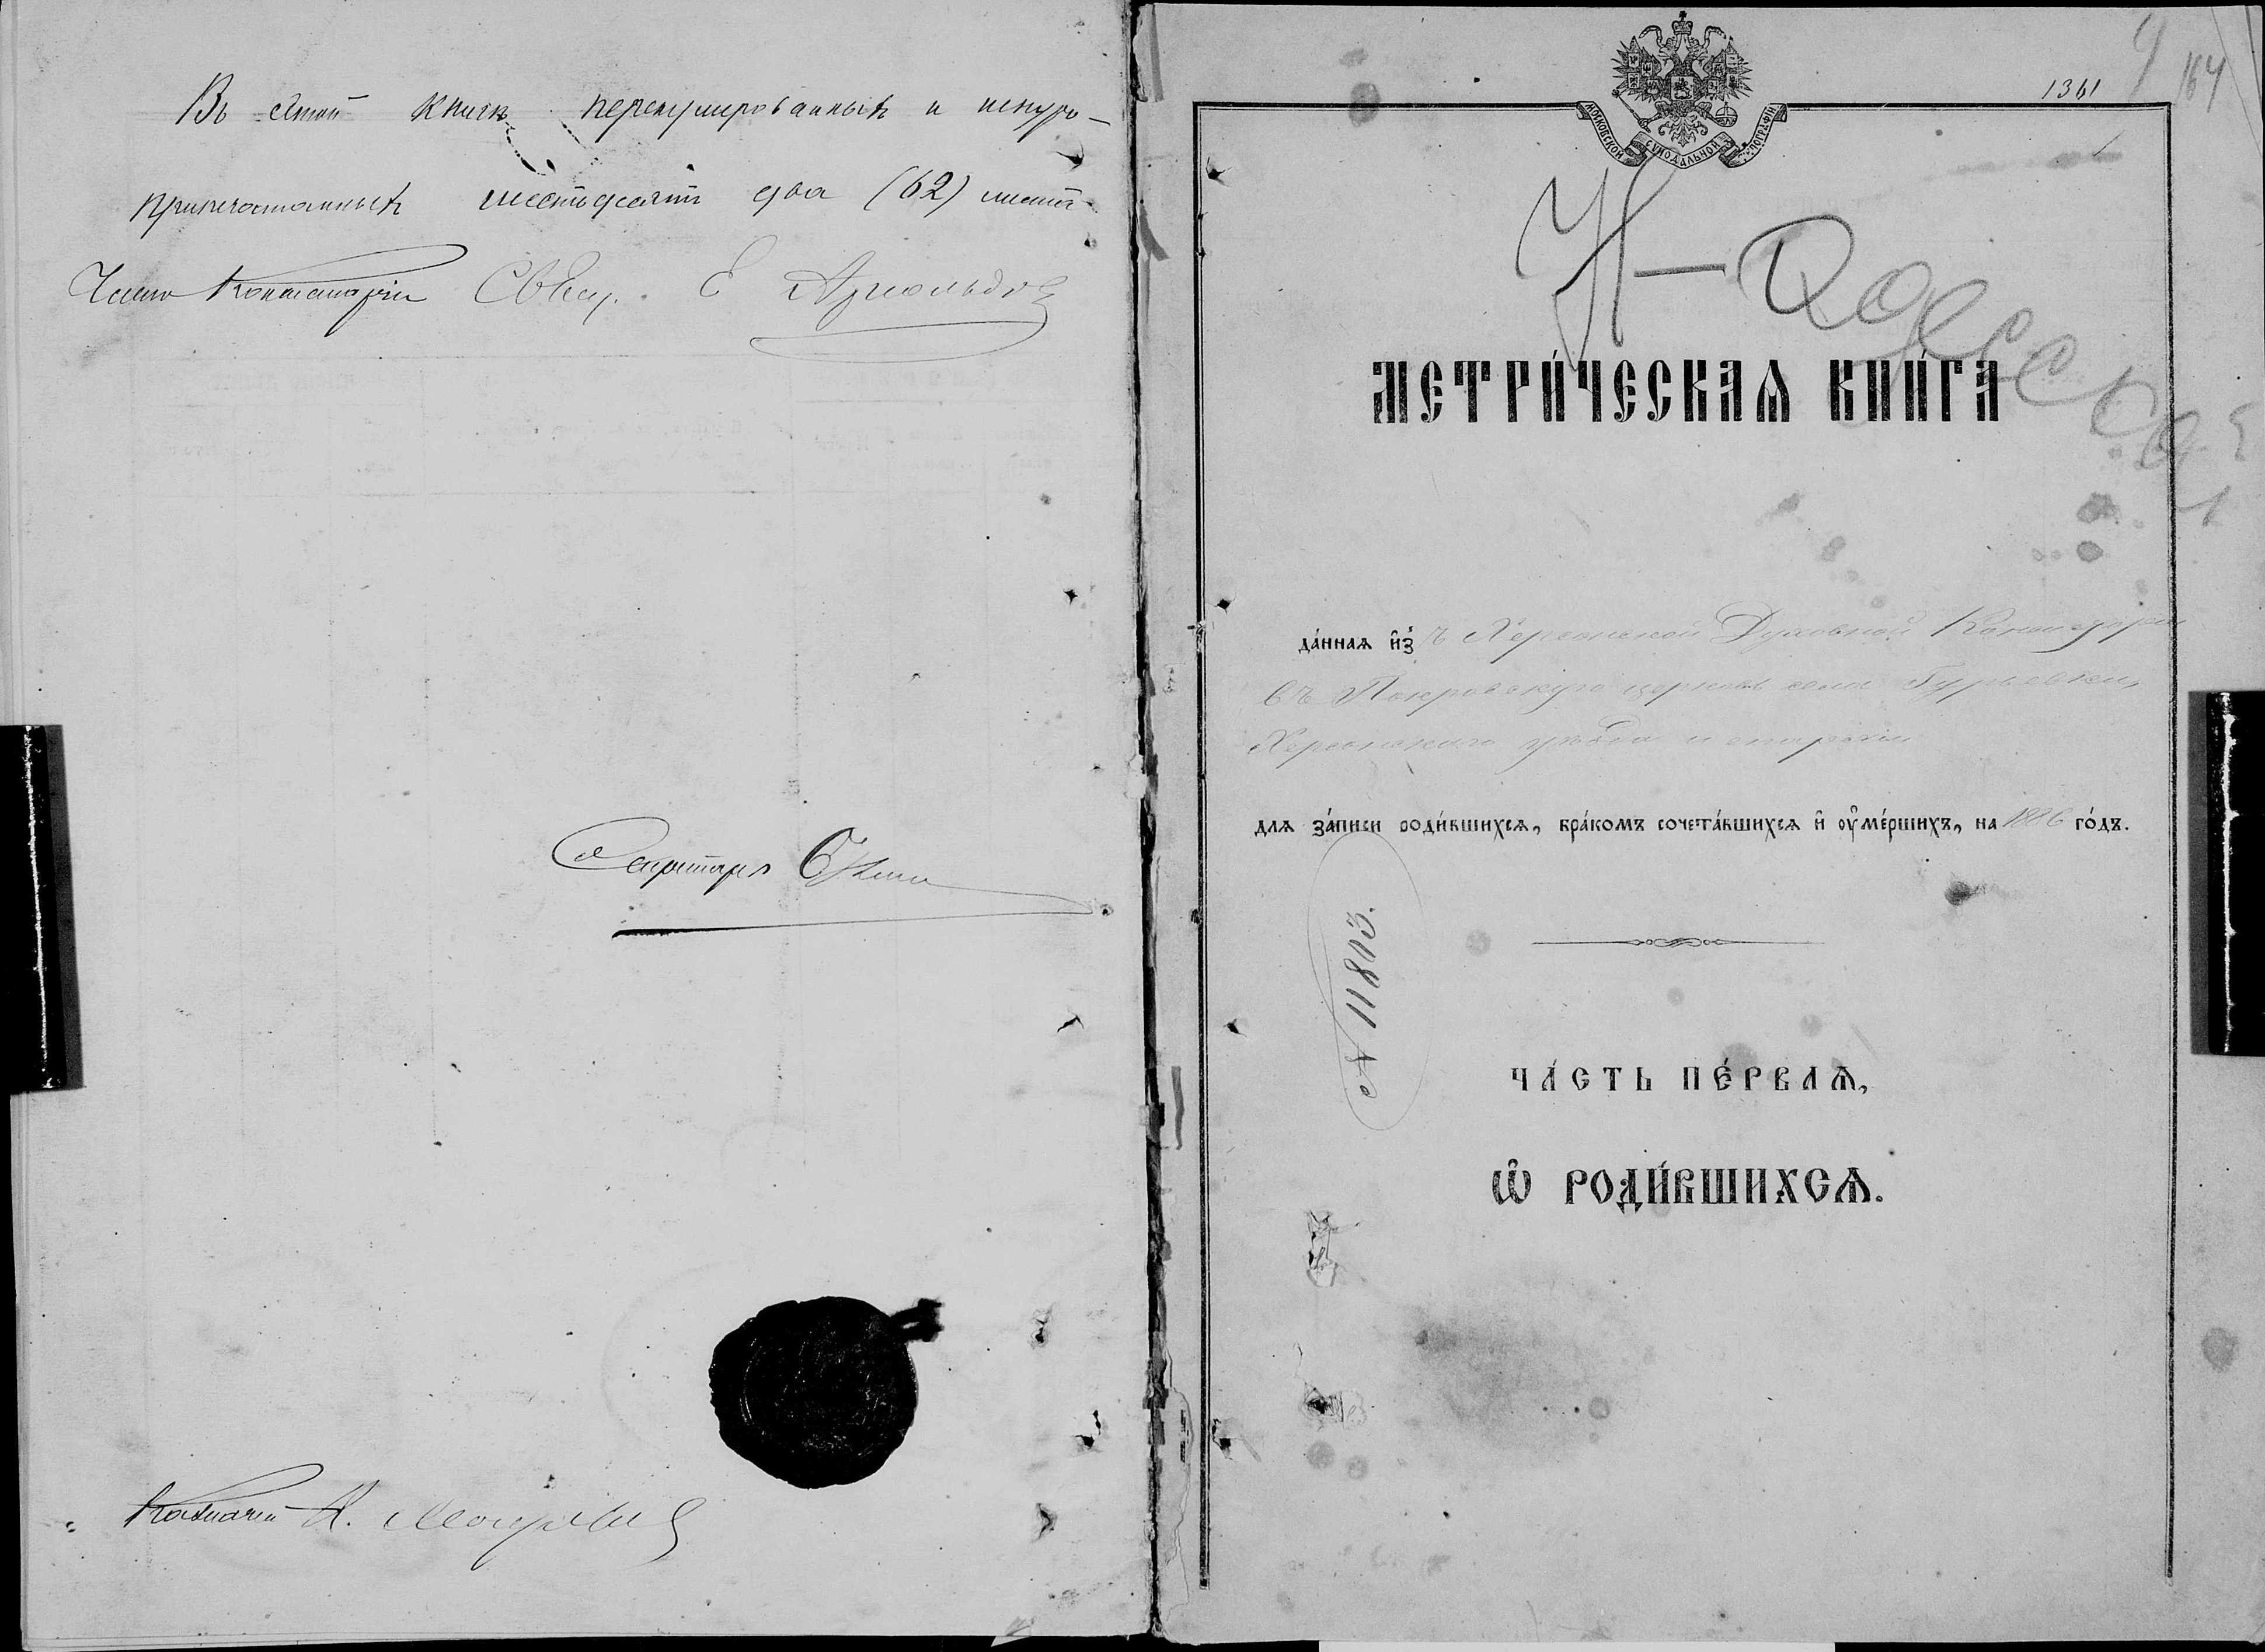 Въ книгѣ перенумерованныхъ и шнуро-
припечатанныхъ шестьдесятъ два (62) листа
Членъ Консисторіи
Секретарь
Казначей
1361
164
МОСКОВСКОЙ СѴНОДАЛЬНОЙ ТѴПОГРАФІИ
Н-Одесса
МЕТРИ́ЧЕСКАѦ КНИ́ГА
да́ннаѧ и҆з̾ъ Херсонской Духовной Консисторіи
въ Покровскую церковь села Гурьевки,
Херсонскаго уѣзда и епархіи
для за́писи роди́вшихсѧ, бра́комъ сочета́вшихсѧ и҆ ᲂу҆ме́ршихъ, на 1886 го́дъ.
№ 11803.
ЧА́СТЬ ПЕ́РВАѦ,
Ѡ҆ РОДИ́ВШИХСѦ.